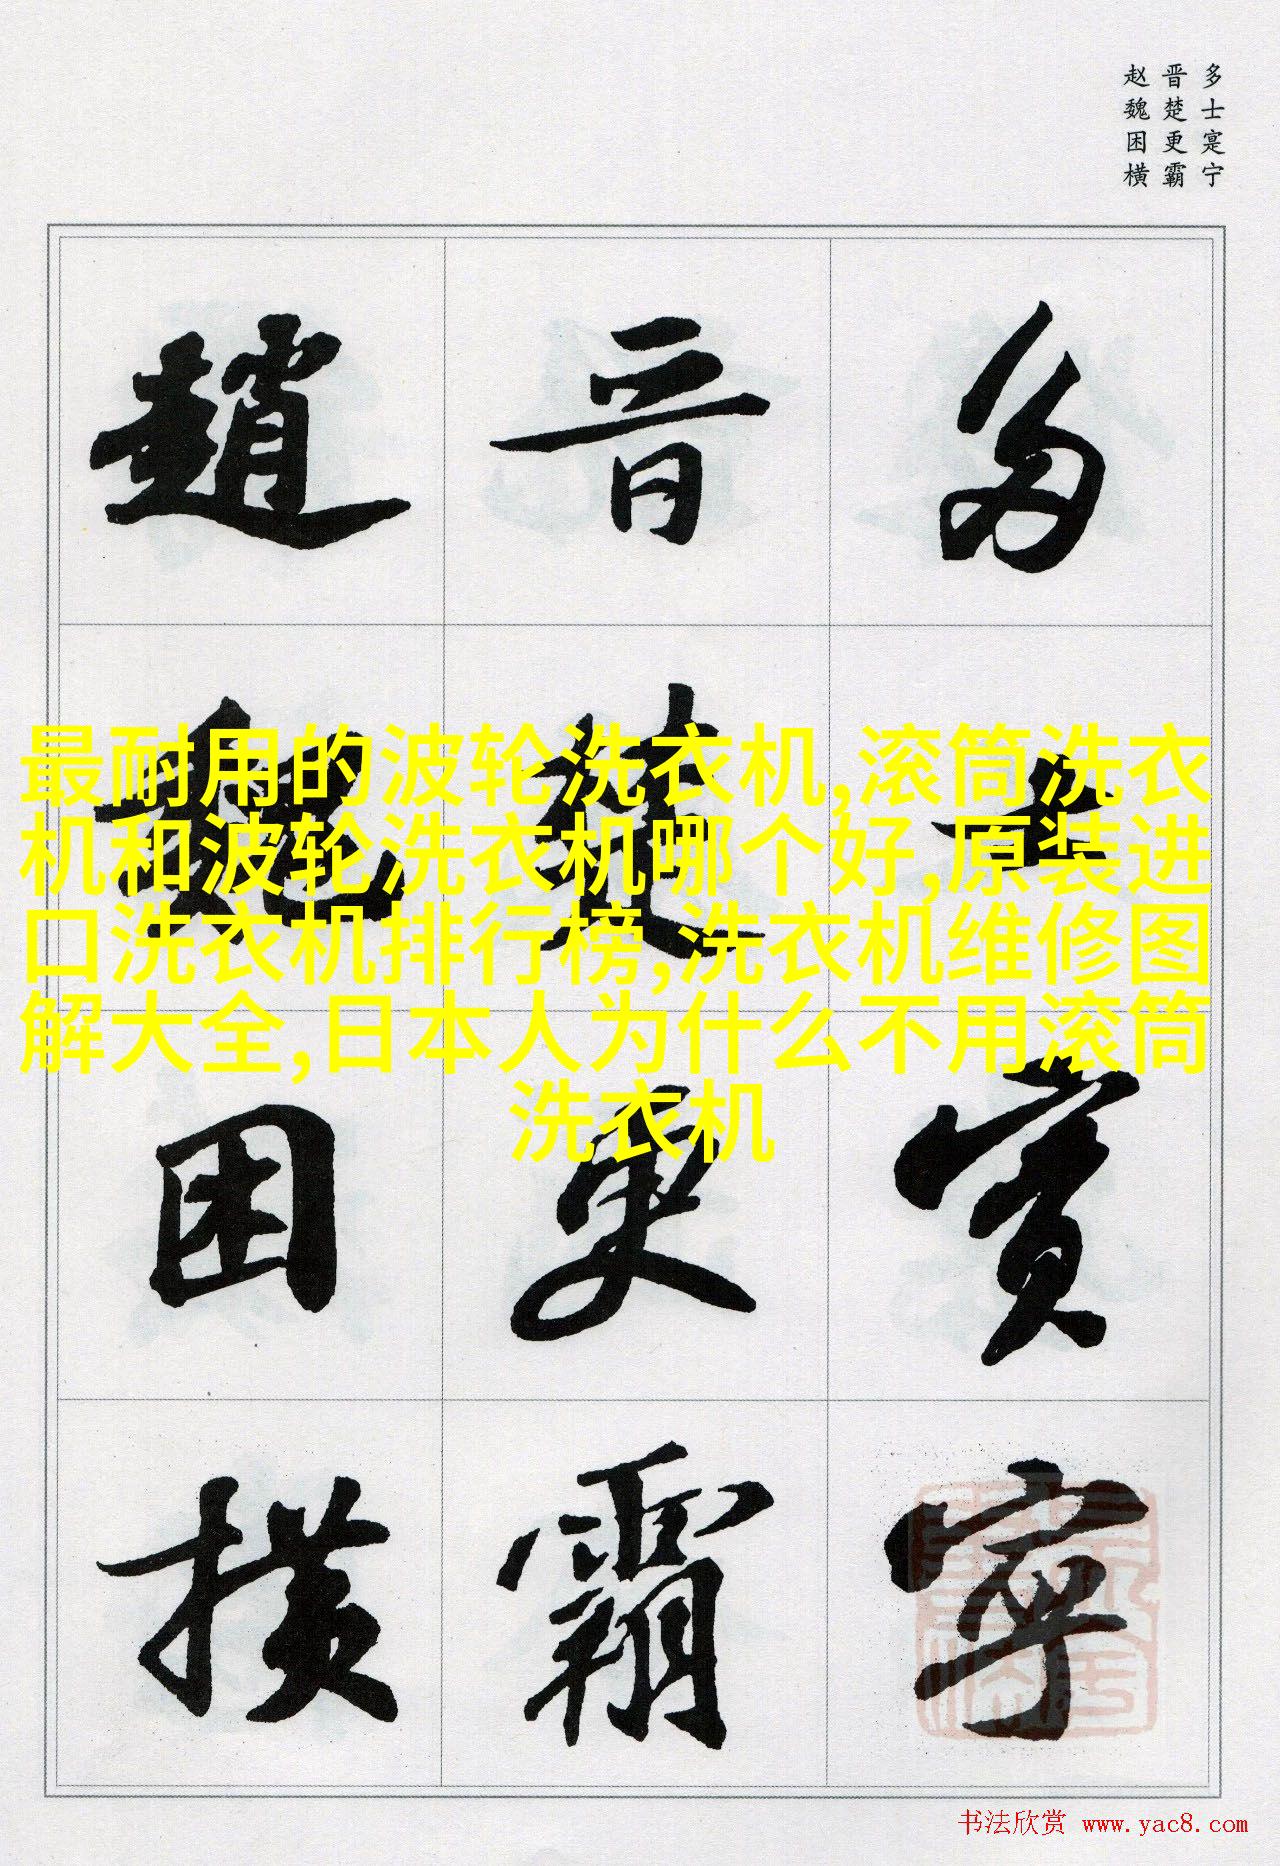 多士寔宁
晋楚更霸
赵魏困横
多士寔寧
晋楚更霸
趙魏困横
最耐用的波轮洗衣机,滚筒洗衣
机和波轮洗衣机哪个好,原装进
口洗衣机排行榜,洗衣机维修图
解大全,日本人为什么不用滚筒
洗衣机
书法欣赏 www.yac8.com